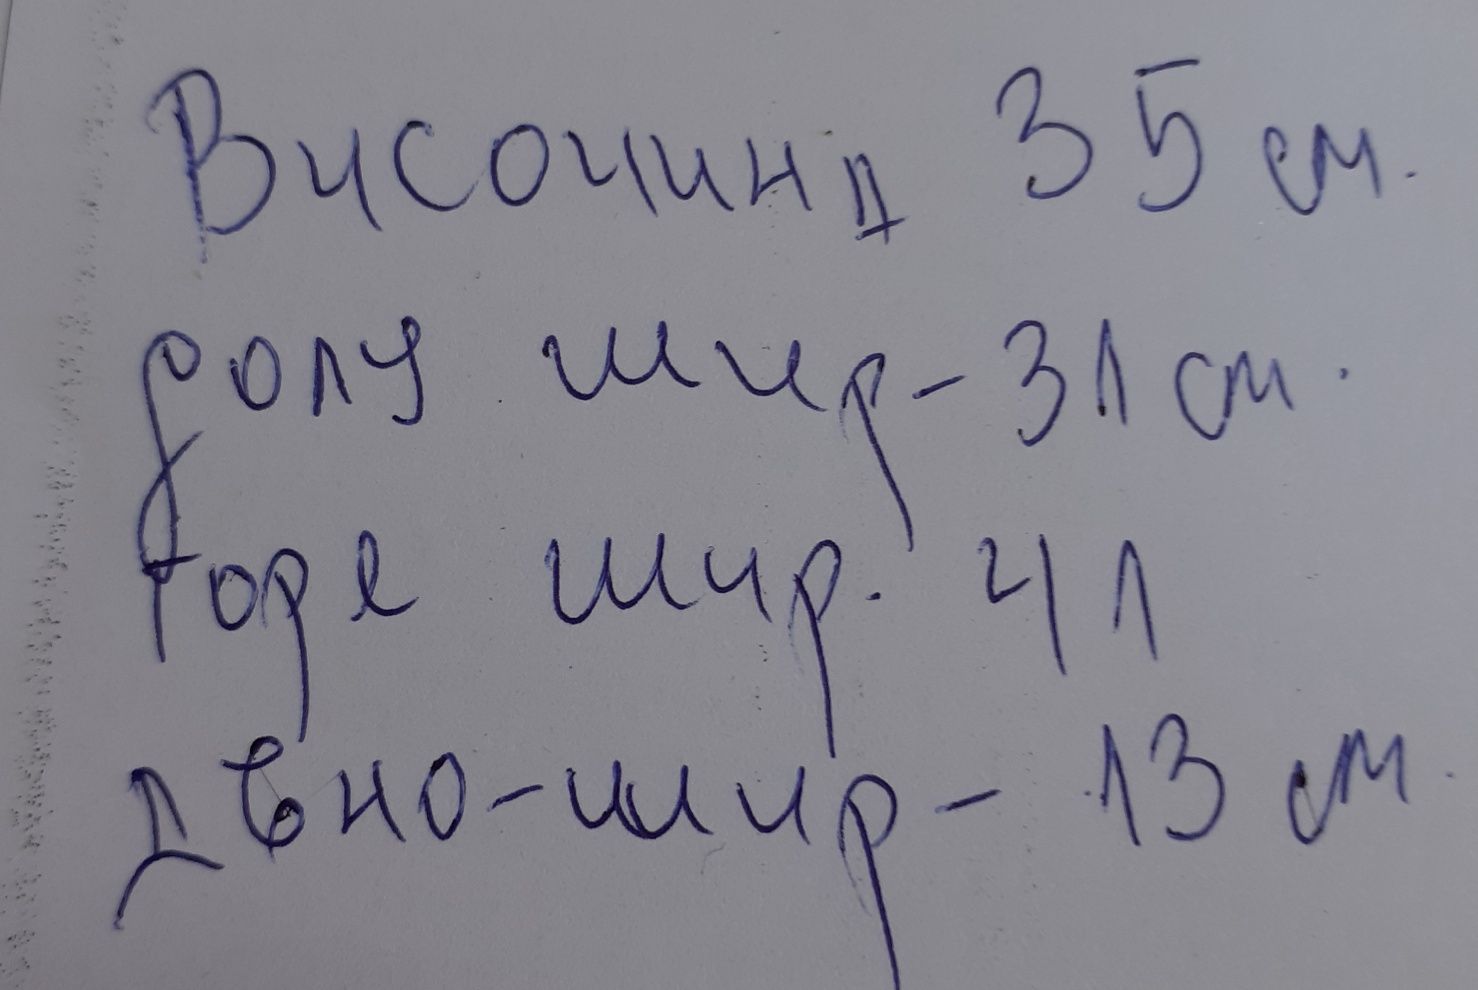 Височина 35 см.
долу шир - 31 см.
горе шир. 41
дъно - шир - 13 см.